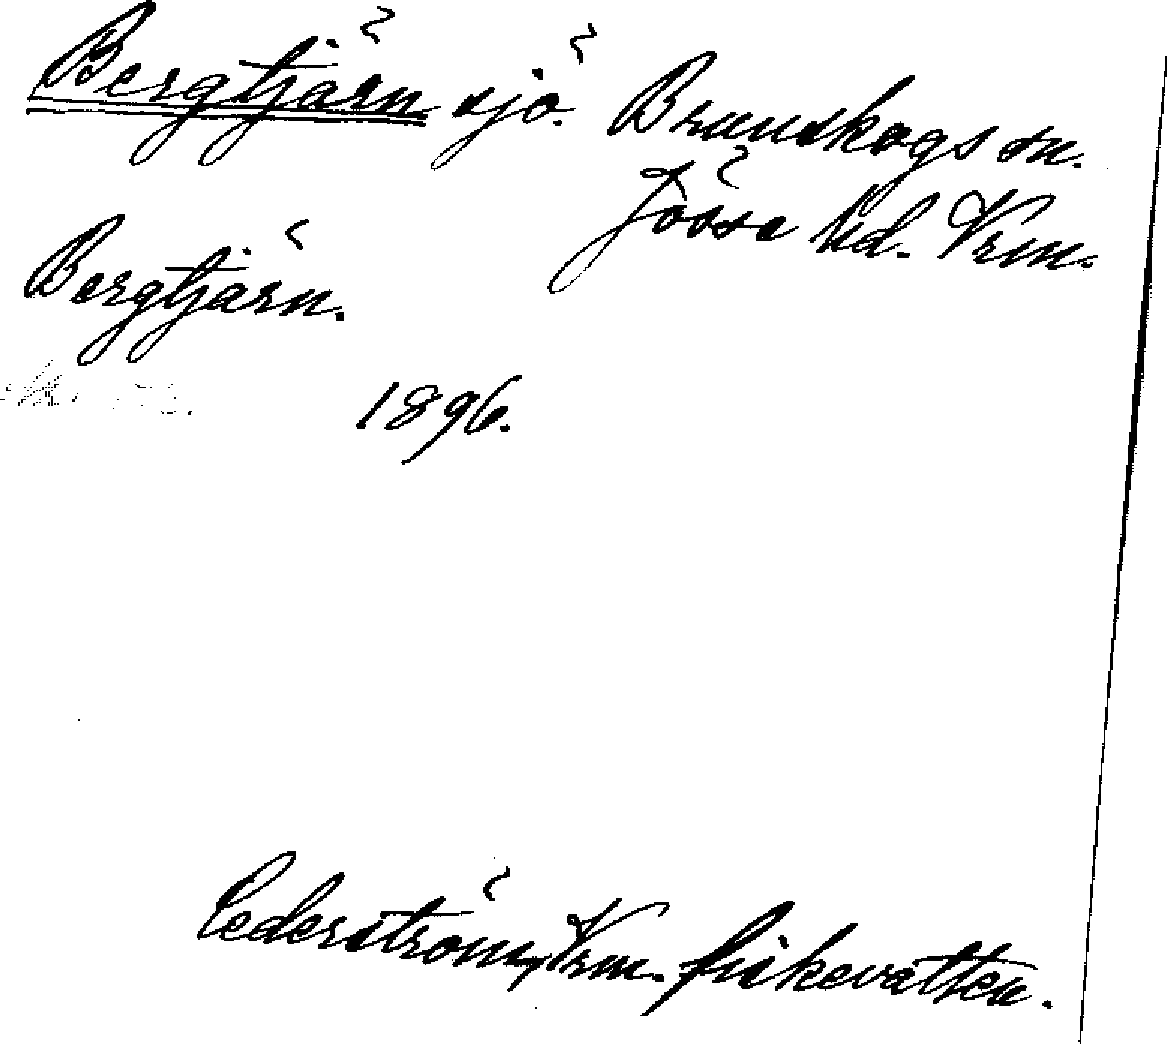 Bergtjärn sjö. Brunskogs sn.
Jösse hd. Vrm.
Bergtjärn.
1896.
Cederström, Vrm. fiskevatten.